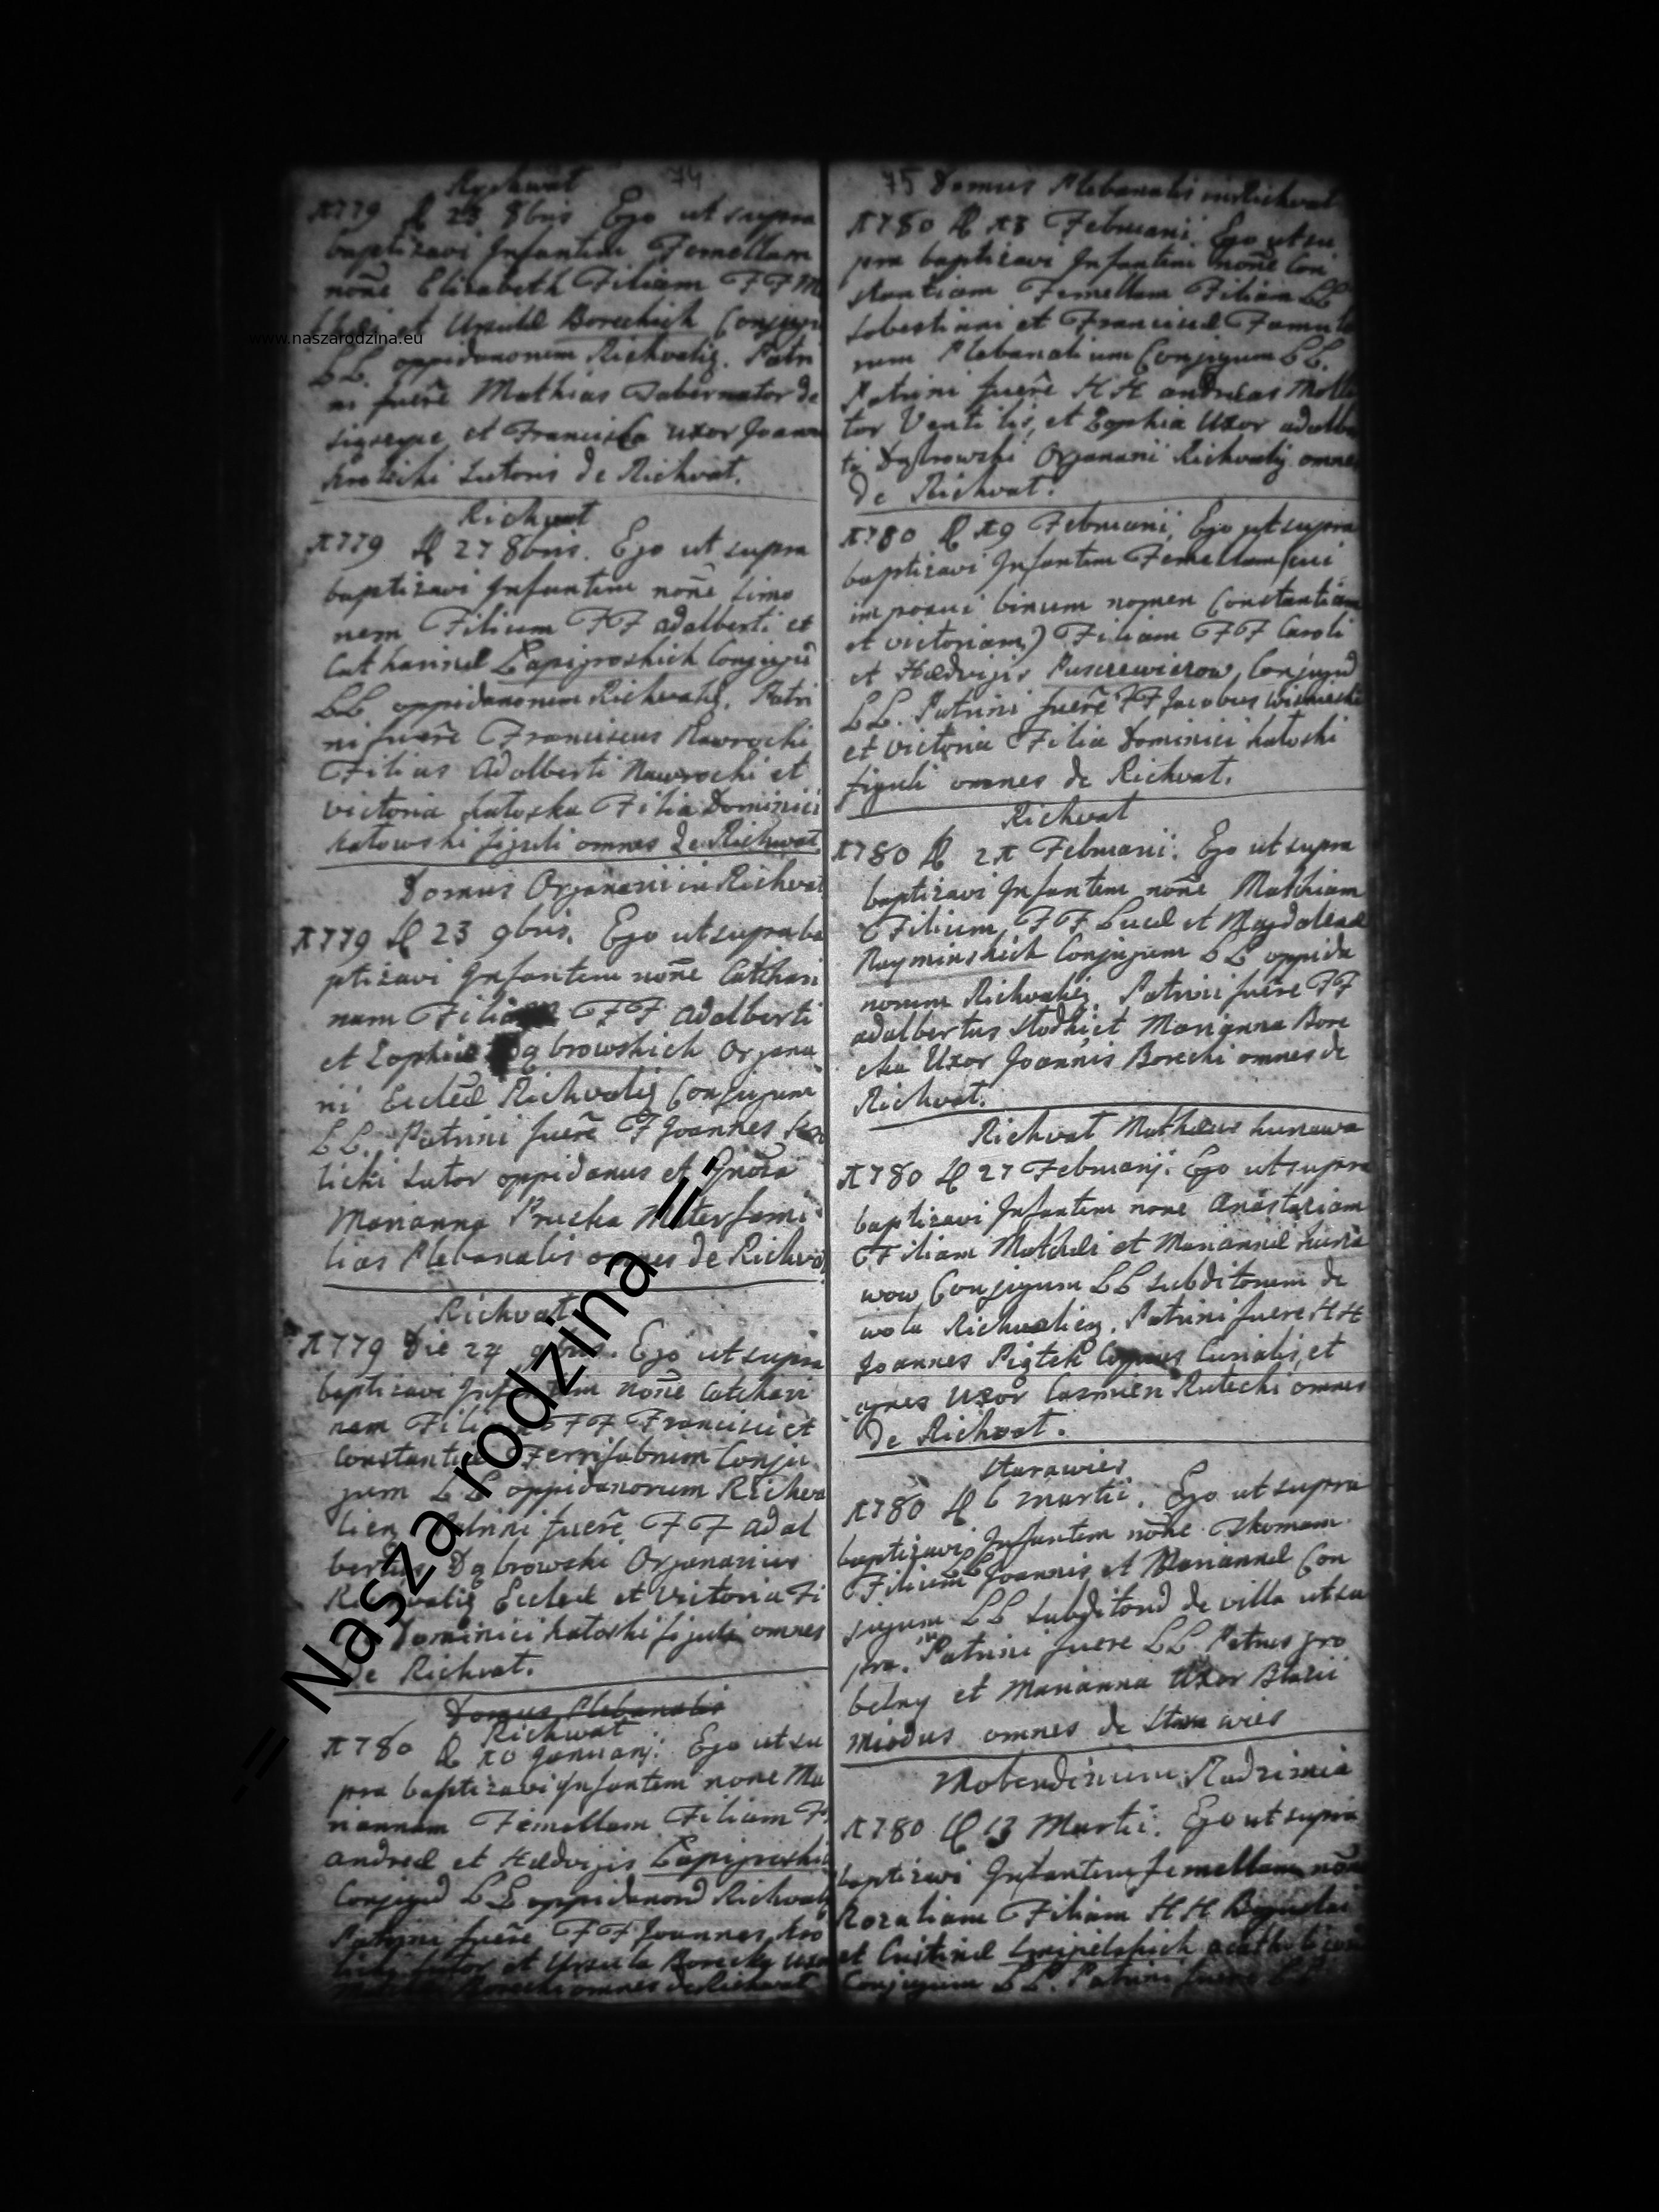 Rychwat 74
1779 D 23 8bris Ego ut supra
baptizavi Infantem Femellam
noñe Elisabeth Filiam FF M
et Ursulæ Boreckich Conjugu
LL. oppidanorum Richvalien. Patri
ni fuere Mathias Tabernator de
et Francisca uxor Joann
Krolicki Sutoris de Richvat.
Richvat
1779 D 27 8bris. Ego ut supra
baptizavi Infantem noñe Simo
nem Filium FF Adalberti et
Catharinæ Lapigroskich Conjugu
LL oppidanorum Richvalien. Patri
ni fuere Franciscus Nawrocki
Filius Adalberti Nawrocki et
victoria Katoska Filia Dominici
Katowski figuli omnes de Richwat
Domus Organarii in Richvat
1779 D 23 9bris. Ego ut supra ba
ptizavi Infantem noñe Cathari
nam Filiam FF Adalberti
et Zophiæ Dąbrowskich Organa
rii Eccleæ Richvalien Conjugum
LL. Patrini fuere F Joannes Kro
licki Sutor oppidanus et
Marianna Pruska Materfami
lias Plebanalis omnes de Richvat
Richvat
1779 Die 24 9bris. Ego ut supra
baptizavi Infantem noñe Cathari
nam Filiam FF Francisci et
Constantiæ Ferrifabrum Conju
gum LL oppidanorum Richva
lien Patrini fuere FF Adal
bertus Dąbrowski Organarius
Richvalien Eccleæ et Victoria Fi
Dominici Katoski figuli omnes
de Richvat.
Domus Plebanalis
Richwat
1780 D 10 Januarij. Ego ut su
pra baptizavi Infantem none Ma
riannam Femellam Filiam F
Andreæ et Hedvigis Lapigroskich
Conjugu LL oppidanoru Richvali
Patrini fuere FF Joannes Kro
licki Sutor et Ursula Borecky uxor
Borecki omnes de Richvat
75 Domus Plebanalis in Richvat
1780 D 13 Februarii. Ego ut su
pra baptizavi Infantem noñe Con
stantiam Femellam Filiam LL
Sobestiani et Franciscæ Famulo
rum Plebanalium Conjugum LL.
Patrini fuere HH Andreas Moli
tor Ventilis, et Zophia Uxor adalber
ti Dąbrowski Organarii Richvalij omnes
de Richvat.
1780 D 19 Februarii. Ego ut supra
baptizavi Infantem Femellam (cui
imposui binum nomen Constantiam
et victoriam) Filiam FF Caroli
et Hedvigis Conjugu
LL. Patrini fuere FF Jacobus
et victoria Filia Dominici Katoski
figuli omnes de Richvat.
Richvat
1780 D 21 Februarii. Ego ut supra
baptizavi Infantem noñe Mathiam
Filium FF Lucæ et Magdalenæ
Rayminskich Conjugum LL oppida
norum Richvalien. Patrini fuere FF
adalbertus et Marianna Bore
cka Uxor Joannis Borecki omnes de
Richvat.
Richvat Mathæus
1780 D 27 Februarij. Ego ut supra
baptizavi Infantem none Anastasiam
Filiam Mathæi et Mariannæ
Conjugum LL Subditorum de
wola Richvalien. Patrini fuere HH
Joannes Piątek Curialis, et
agnes Uxor Rutecki omnes
de Richvat.
Starawies
1780 D 6 Martii. Ego ut supra
baptizavi Infantem noñe Thomam
Filium LL Joannis et Mariannæ Con
jugum LL Subditoru de villa ut su
pra. Patrini fuere LL Petrus gro
belny et Marianna Uxor Blasii
Miodus omnes de Starawies
Molendinum Rudzinia
1780 D 13 Martii. Ego ut supra
baptizavi Infantem femellam noñe
Rozaliam Filiam HH
et Cristinæ
Conjugum LL. Patrini fuere
www.naszarodzina.eu
-= Nasza rodzina =-